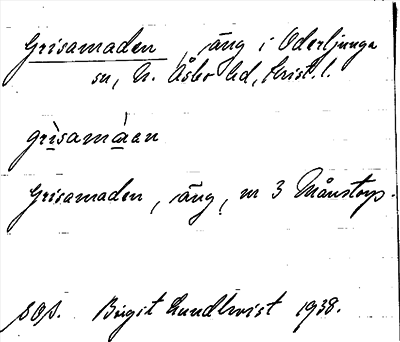 Grisamaden, äng i Oderljunga
sn, N. Åsbo hd, Krist. l.
grìsamàan
Grisamaden, äng, nr 3 Månstorp.
SOA. Birgit Lundkvist 1938.